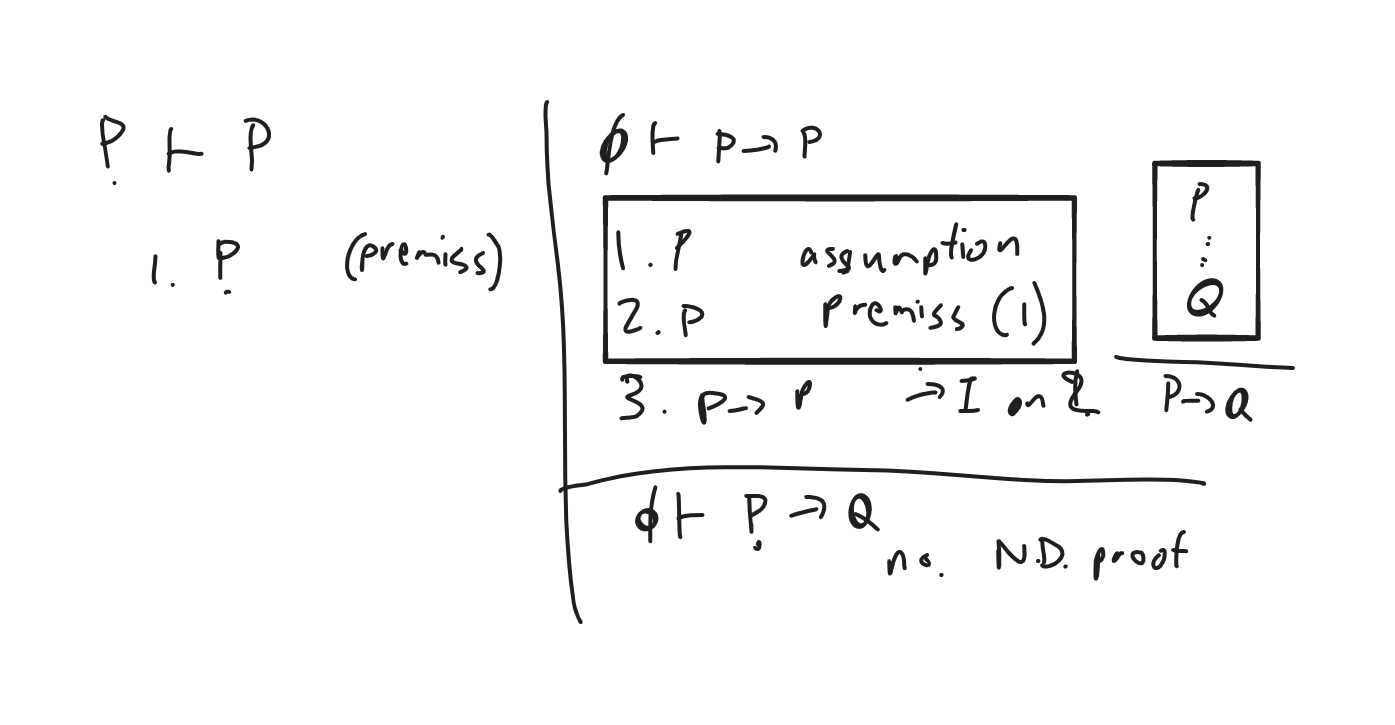 P ⊢ P
1. P (premiss)
ϕ ⊢ P → P
1. P assumption
2. P Premiss (1)
3. P → P → I on
P
⋮
Q
P → Q
ϕ ⊢ P → Q
no. N.D. proof